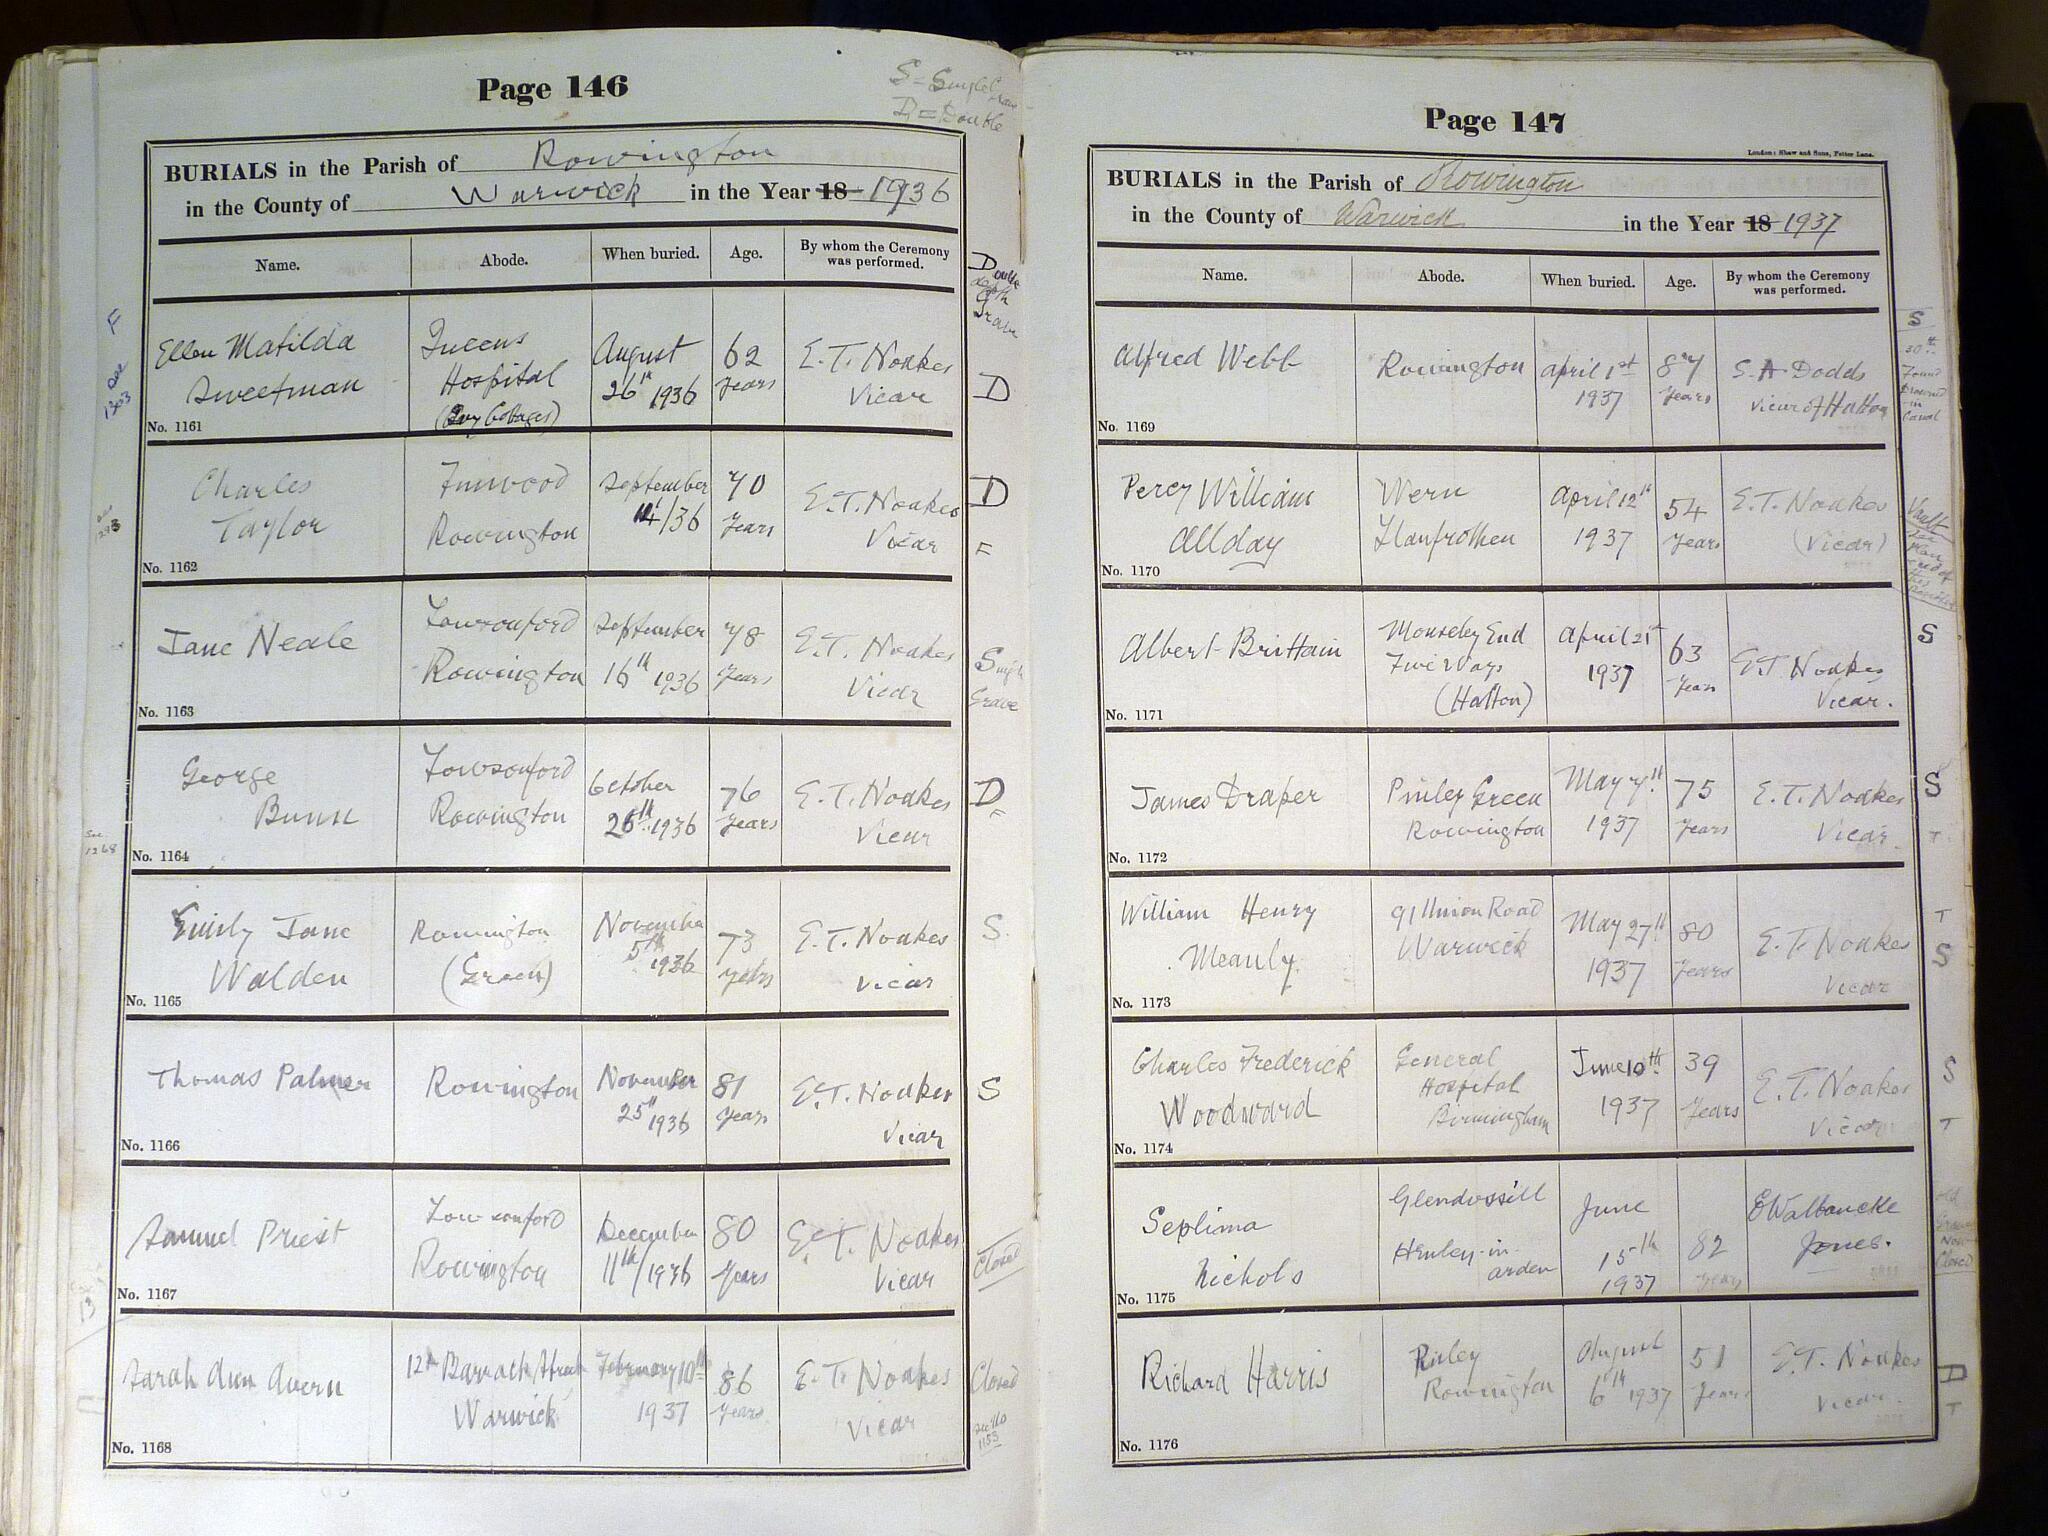 Page 146
S = Single Grave
D = Double
BURIALS in the Parish of Rowington
in the County of Warwick in the Year 18 1936
Name. Abode. When buried. Age. By whom the Ceremony was performed.
Double
depth
Grave
F
see
1303
Ellen Matilda Queens August 62 E. T. Noakes
Sweetman Hospital 26th 1936 Years Vicar
(Ivy Cottages)
D
No. 1161
Charles Finwood September 70 E. T. Noakes
Taylor Rowington 14/36 Years Vicar
D
F
No. 1162
Jane Neale Lowsonford September 78 E. T. Noakes
Rowington 16th 1936 Years Vicar
Single
Grave
No. 1163
George Lowsonford October 76 E. T. Noakes
Bunn Rowington 26th 1936 Years Vicar
D
See
1268
No. 1164
Emily Jane Rowington November 73 E. T. Noakes
Walden (Green) 5th 1936 Years Vicar
S.
No. 1165
Thomas Palmer Rowington November 81 E. T. Noakes
25th 1936 Years Vicar
S
No. 1166
Samuel Priest Lowsonford December 80 E. T. Noakes
Rowington 11th/1936 Years Vicar
Closed
No. 1167
Sarah Ann Avern 12 Barrack Street February 10th 86 E. T. Noakes
Warwick 1937 Years Vicar
Closed
see No
1153
No. 1168
Page 147
London: Shaw and Sons, Fetter Lane.
BURIALS in the Parish of Rowington
in the County of Warwick in the Year 18 1937
Name. Abode. When buried. Age. By whom the Ceremony was performed.
Alfred Webb Rowington April 1st 87 S. A. Dodds
1937 Years Vicar of Hatton
S
Found
Drowned
in
Canal
No. 1169
Percy William Wern April 12th 54 E. T. Noakes
Allday Llanfrothen 1937 Years (Vicar)
Vault
No. 1170
Albert Brittain Mouseley End April 21st 63 E. T. Noakes
Five Ways 1937 Years Vicar.
(Hatton)
S
No. 1171
James Draper Pinley Green May 7th 75 E. T. Noakes
Rowington 1937 Years Vicar.
S
T
No. 1172
William Henry 91 Union Road May 27th 80 E. T. Noakes
Meanly Warwick 1937 Years Vicar
T
S
No. 1173
Charles Frederick General June 10th 39 E. T. Noakes
Woodward Hospital 1937 Years Vicar
Birmingham
S
T
No. 1174
Septima Glendossill June 82 E Walbancke
Nichols Henley-in-arden 15th 1937 Years Jones.
old
Grave
Now
Closed
No. 1175
Richard Harris Pinley August 51 E. T. Noakes
Rowington 6th 1937 Years Vicar.
D
T
No. 1176